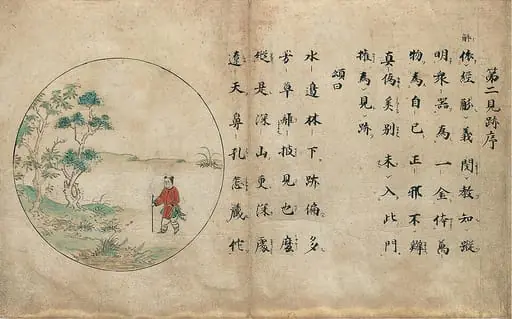 第二見跡序
依經解義閱教知蹤
明衆器為一金体萬
物為自己正邪不辨
真偽奚別未入此門
權為見跡
頌曰
水邊林下跡偏多
芳草離披見也麼
縱是深山更深處
遼天鼻孔怎藏佗